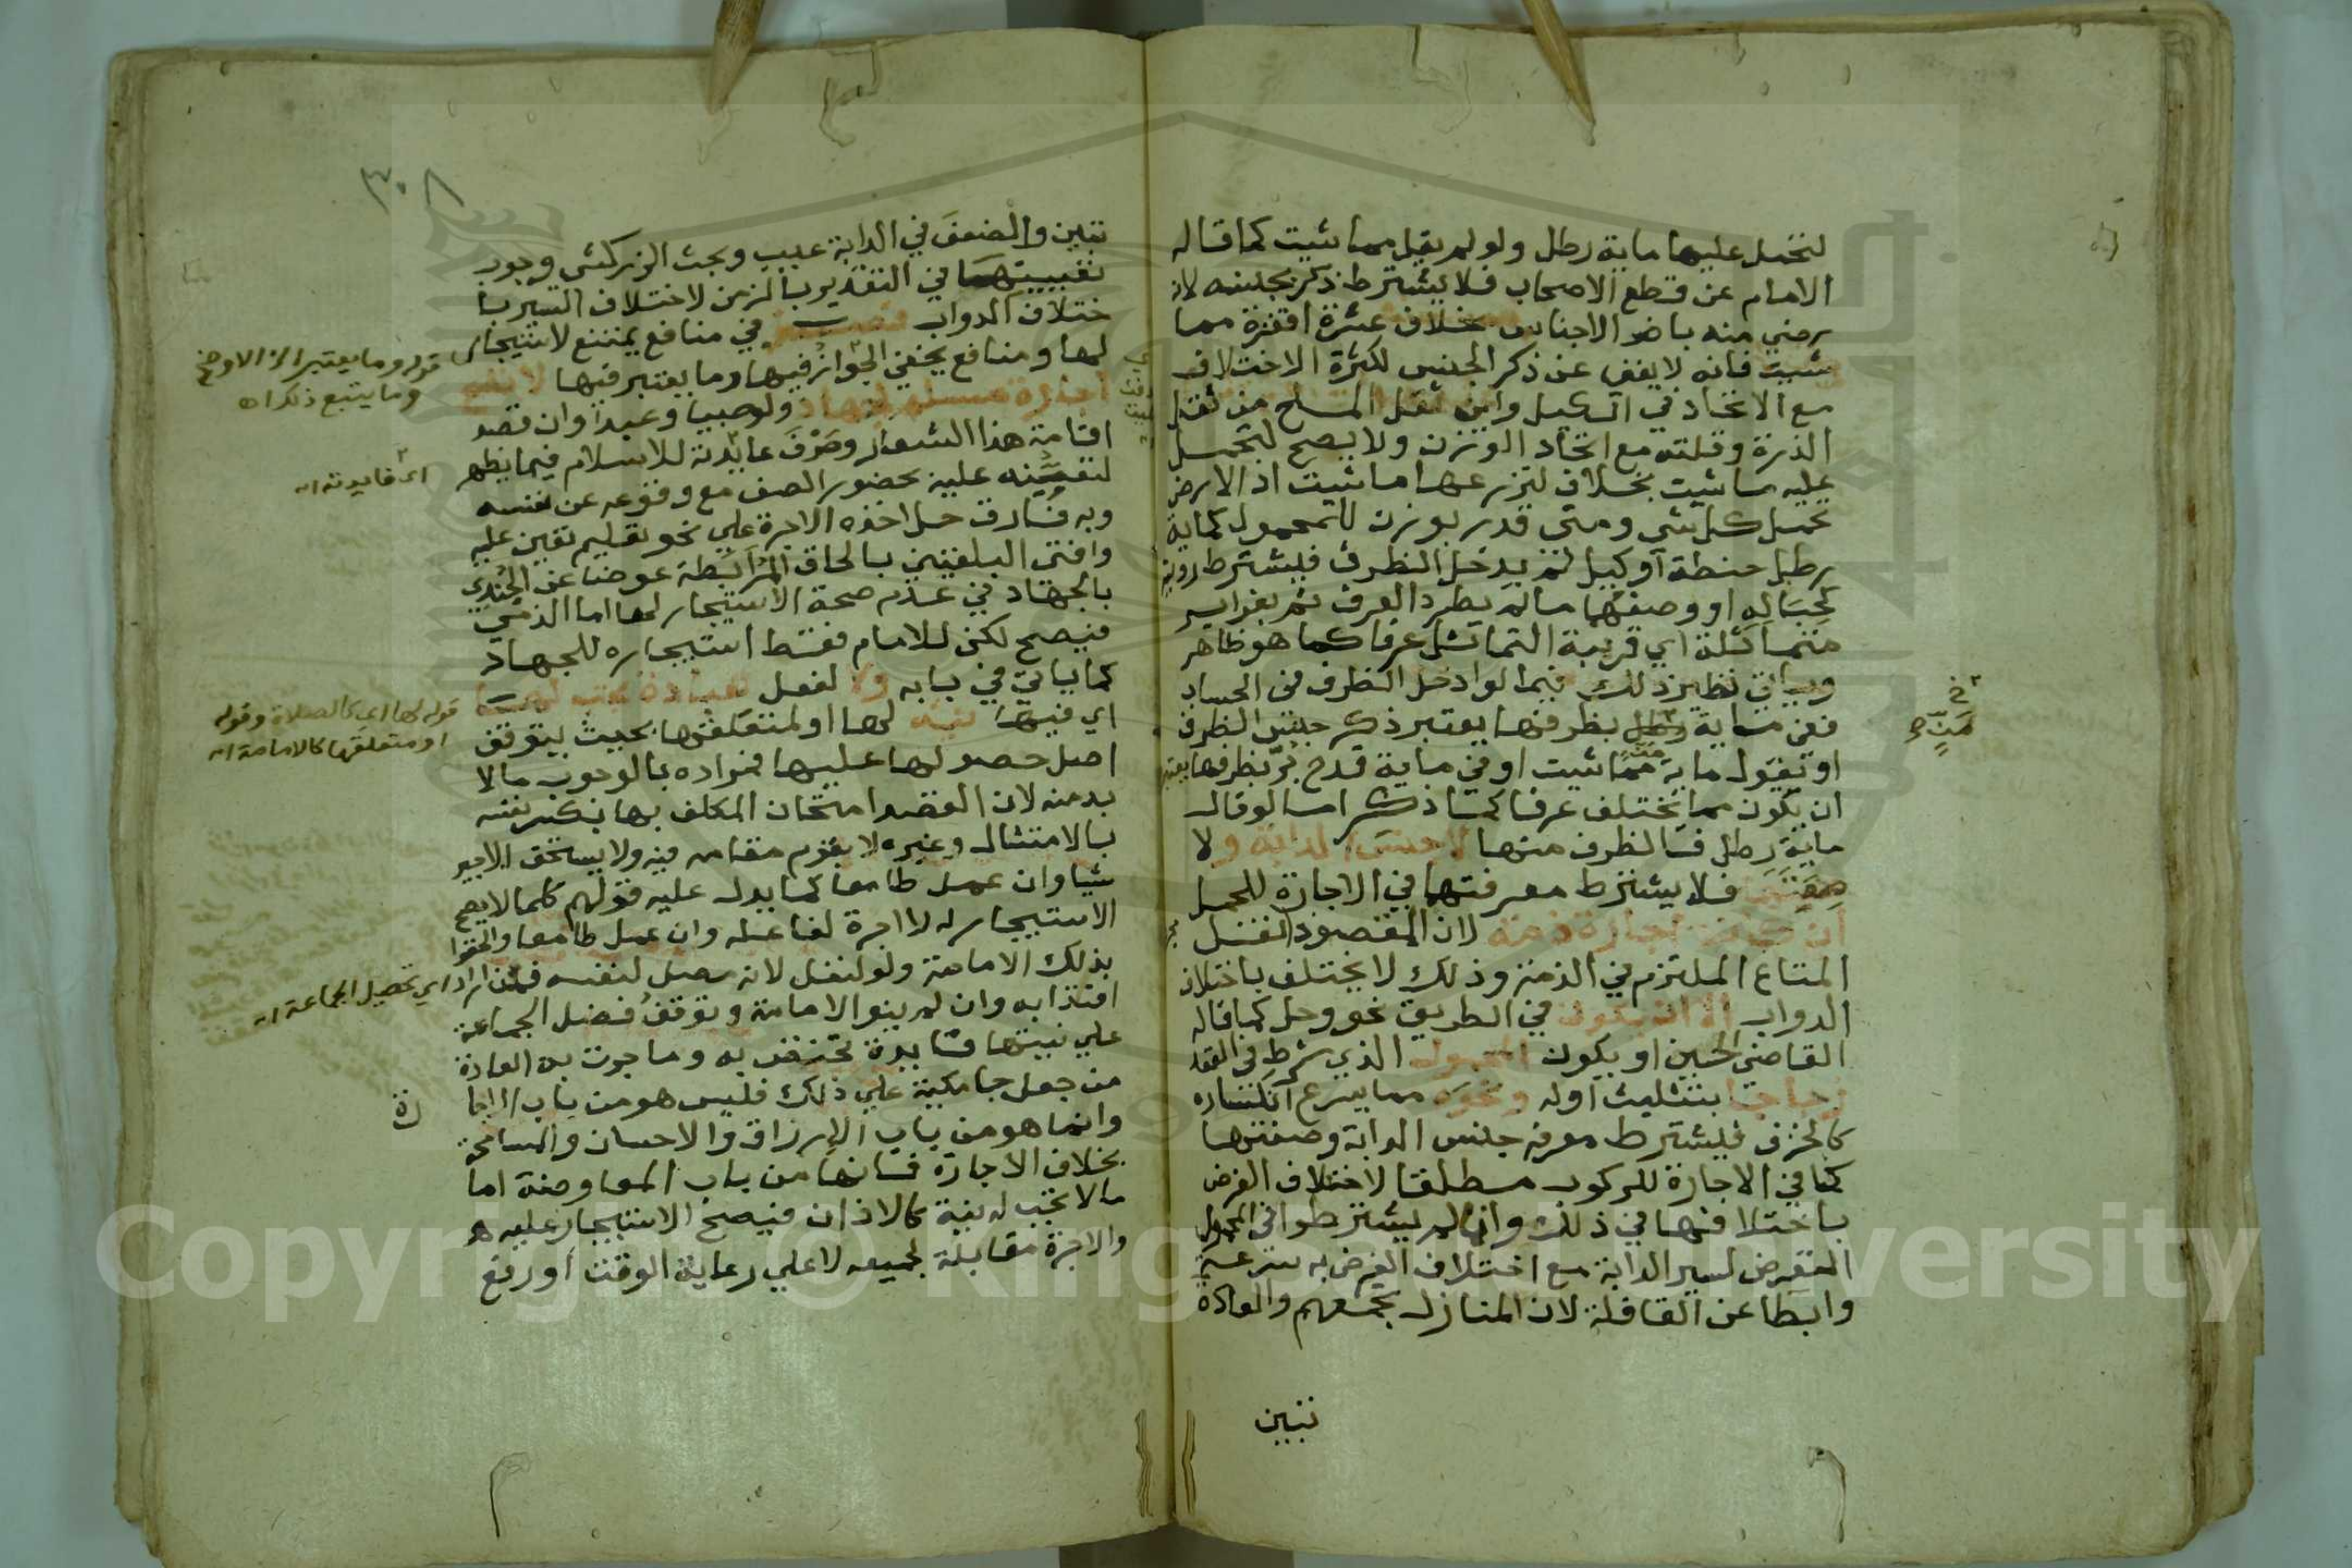 لتحمل عليها ماية رطل ولو لم يقل مما شيت كما قاله
الامام عن قطع الاصحاب فلا يشترط ذكر جنسه لان
رضي منه باضر الاجناس بخلاف عشرة اقفزة مما
شيت فانه لا يغني عن ذكر الجنس لكثرة الاختلاف
مع الاتحاد في الكيل واين ثقل الملح من ثقل
الذرة وقلته مع اتحاد الوزن ولا يصح لتحمل
عليه ما شيت بخلاف لتزرعها ما شيت اذ الارض
تحمل كل شي ومتى قدر بوزن للمحمول كماية
رطل حنطة او كيل لم يدخل الظرف فيشترط روية
كحباله او وصفهما ما لم يطرد العرف ثم بغراير
متماثلة اي قريبة التماثل عرفا كما هو ظاهر
وياتي نظير ذلك فيما لو ادخل الظرف في الحساب
ففي ماية رطل بظرفها يعتبر ذكر جنس الظرف
او تقول ماية مما شيت او في ماية قدح بر بظرفها يعتبر
ان يكون مما تختلف عرفا كما ذكر اما لو قال
ماية رطل فالظرف منها لا جنس الدابة ولا
صفتها فلا يشترط معرفتها في الاجارة للحمل
ان كانت اجارة ذمة لان المقصود نقل
المتاع الملتزم في الذمة وذلك لا يختلف باختلاف
الدواب الا ان يكون في الطريق نحو وحل كما قاله
القاضي الحسين او يكون المحمول الذي شرط في العقد
زجاجا بتثليث اوله ونحوه مما يسرع انكساره
كالخزف فيشترط معرفة جنس الدابة وصفتها
كما في الاجارة للركوب مطلقا لاختلاف الغرض
باختلافها في ذلك وانما لم يشترطوا في المحمول
التعرض لسير الدابة مع اختلاف الغرض به سرعة
وابطا عن القافلة لان المنازل تجمعهم والعادة
تبين
خ
مَنٍّ صح
٣٠٨
تبين والضعف في الدابة عيب وبحث الزركشي وجوب
تعيينهما في التقدير بالزمن لاختلاف السير با
ختلاف الدواب فصل في منافع يمتنع الاستيجار
لها ومنافع يخفى الجواز فيها وما يعتبر فيها لا تصح
اجارة مسلم لجهاد ولو صبيا وعبدا وان قصد
اقامة هذا الشعار وصرف عايدته للاسلام فيما يظهر
لتعينه عليه بحضور الصف مع وقوعه عن نفسه
وبه فارق حل اخذه الاجرة على نحو تعليم تعين عليه
وافتى البلقيني بالحاق المرابطة عوضا عن الجندي
بالجهاد في عدم صحة الاستيجار لها اما الذمي
فيصح لكن للامام فقط استيجاره للجهاد
كما ياتي في بابه ولا لفعل عبادة تجب لها
اي فيها نية لها او لمتعلقها بحيث يتوقف
اصل حصولها عليها فمراده بالوجوب ما لا
بد منه لان القصد امتحان المكلف بها بكسر نفسه
بالامتثال وغيره لا يقوم مقامه فيه ولا يستحق الاجير
شيا وان عمل طامعا كما يدل عليه قولهم كلما لا يصح
الاستيجار له لا اجرة لفاعله وان عمل طامعا والحقوا
بذلك الامامة ولو لنفل لانه مصل لنفسه فمن اراد
اقتدا به وان لم ينو الامامة وتوقف فضل الجماعة
علي نيتها فايدة تختص به وما جرت به العادة
من جعل جامكية علي ذلك فليس هو من باب الاجا
رة
وانما هو من باب الارزاق والاحسان والمسامحة
بخلاف الاجارة فانها من باب المعاوضة اما
ما لا تجب له نية كالاذان فيصح الاستيجار عليه
والاجرة مقابلة لجميعه لا علي رعاية الوقت او رفع
قوله وما يعتبر الخ الاوضح
وما يتبع ذلك اه
اي فايدته اه
قوله لها اي كالصلاة وقوله
او متعلقها كالامامة اه
اي تحصيل الجماعة اه
Copyright © King Saud University